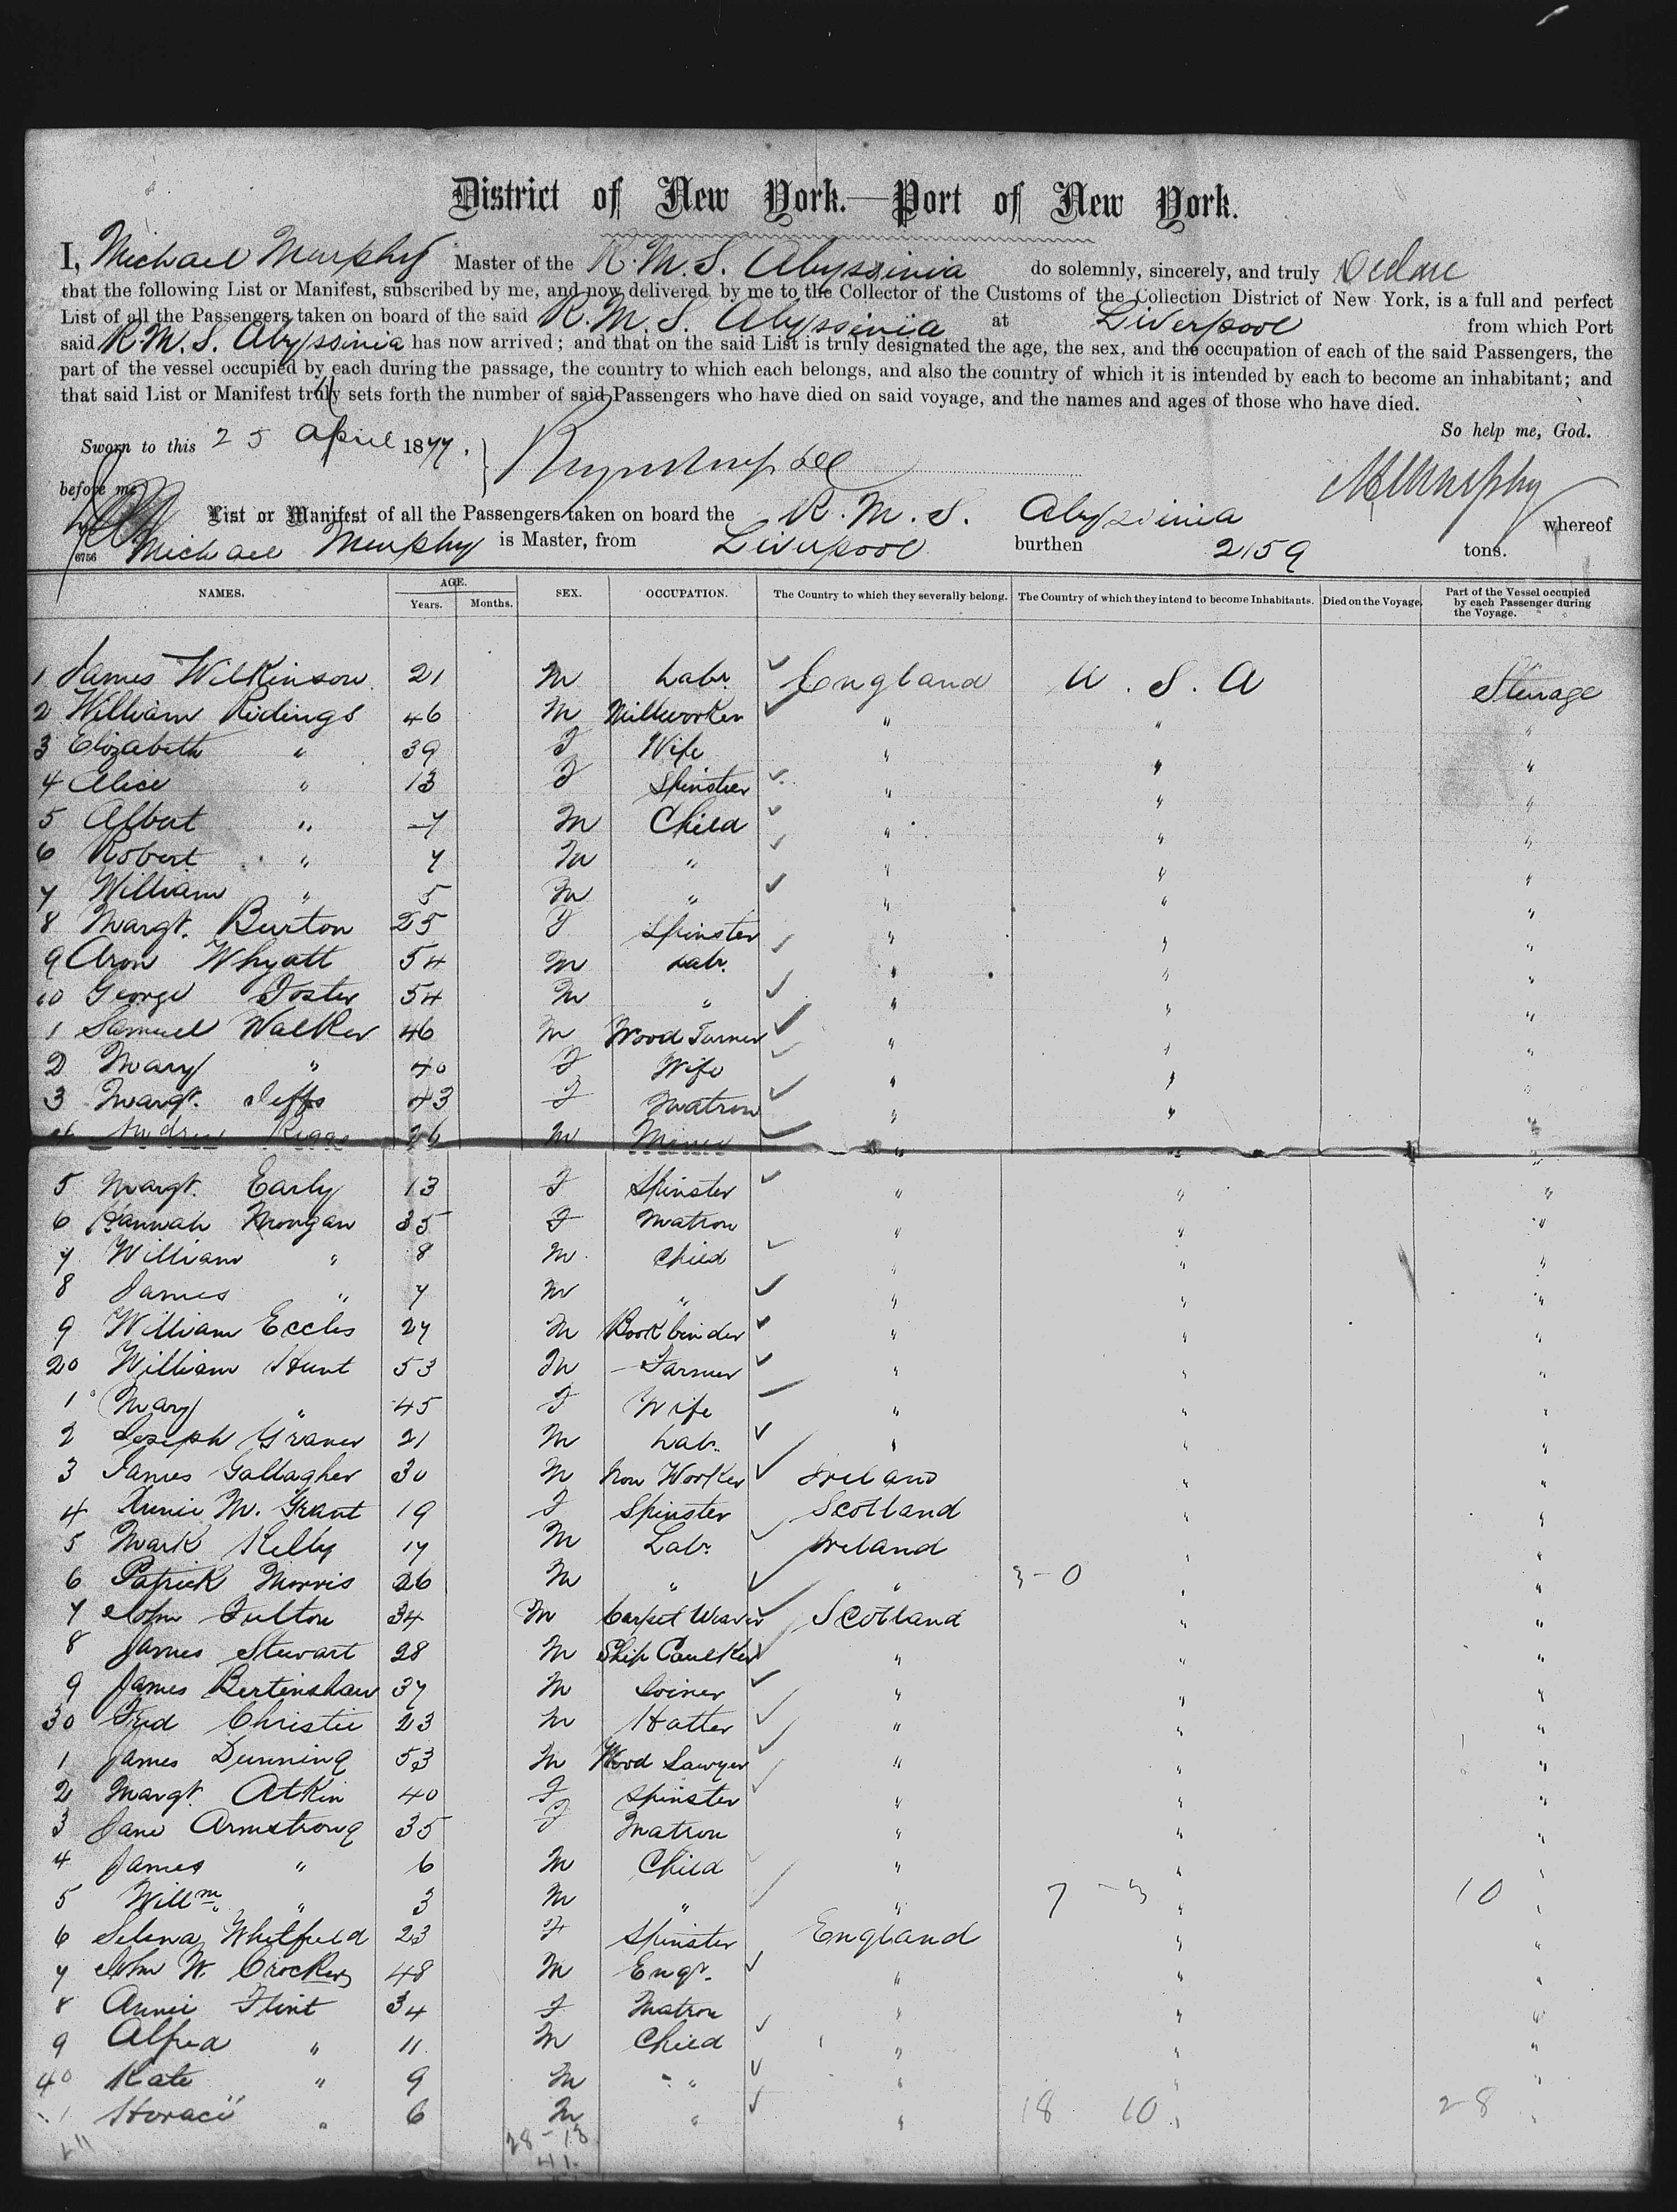 District of New York.—Port of New York.
I, Michael Murphy Master of the R.M.S. Abyssinia do solemnly, sincerely, and truly Declare
that the following List or Manifest, subscribed by me, and now delivered by me to the Collector of the Customs of the Collection District of New York, is a full and perfect
List of all the Passengers taken on board of the said R.M.S. Abyssinia at Liverpool from which Port
said R.M.S. Abyssinia has now arrived; and that on the said List is truly designated the age, the sex, and the occupation of each of the said Passengers, the
part of the vessel occupied by each during the passage, the country to which each belongs, and also the country of which it is intended by each to become an inhabitant; and
that said List or Manifest truly sets forth the number of said Passengers who have died on said voyage, and the names and ages of those who have died.
So help me, God.
Sworn to this 25 April 1877.
before me
M Murphy
List or Manifest of all the Passengers taken on board the R.M.S. Abyssinia whereof
6756 Michael Murphy is Master, from Liverpool burthen 2159 tons.
NAMES. AGE. Years. Months. SEX. OCCUPATION. The Country to which they severally belong. The Country of which they intend to become Inhabitants. Died on the Voyage. Part of the Vessel occupied by each Passenger during the Voyage.
1 James Wilkinson 21 M Labr. England U.S.A Steerage
2 William Ridings 46 M Millworker " " "
3 Elizabeth " 39 F Wife " " "
4 Alice " 13 F Spinster " " "
5 Albert " 7 M Child " " "
6 Robert " 7 M " " " "
7 William " 5 M " " " "
8 Margt. Burton 25 F Spinster " " "
9 Aron Whyatt 54 M Labr. " " "
10 George Foster 54 M " " " "
1 Samuel Walker 46 M Wood Turner " " "
2 Mary " 40 F Wife " " "
3 Margt. Jeffs 43 F Matron " " "
4 Andrew Riggs 26 M Miner " " "
5 Margt. Early 13 F Spinster " " "
6 Hannah Mongan 35 F Matron " " "
7 William " 8 M Child " " "
8 James " 7 M " " " "
9 William Eccles 27 M Bookbinder " " "
20 William Hunt 53 M Farmer " " "
1 Mary " 45 F Wife " " "
2 Joseph Graner 21 M Labr. " " "
3 James Gallagher 30 M Iron Worker Ireland " "
4 Annie M. Grant 19 F Spinster Scotland " "
5 Mark Kelly 17 M Labr. Ireland " "
6 Patrick Morris 26 M " " 3-0 " "
7 John Fulton 34 M Carpet Weaver Scotland " "
8 James Stewart 28 M Ship Caulker " " "
9 James Bertinshaw 37 M Joiner " " "
30 Fred Christie 23 M Hatter " " "
1 James Dunning 53 M Wood Sawyer " " "
2 Margt. Atkin 40 F Spinster " " "
3 Jane Armstrong 35 F Matron " " "
4 James " 6 M Child " " "
5 Willm. " 3 M " " 7-3 " 10 "
6 Selina Whitfield 23 F Spinster England " "
7 John W. Crocker 48 M Engr. " " "
8 Annie Flint 34 F Matron " " "
9 Alfred " 11 M Child " " "
40 Kate " 9 M " " " "
1 Horace " 6 M " " 18 10 " 28 "
28-13
41